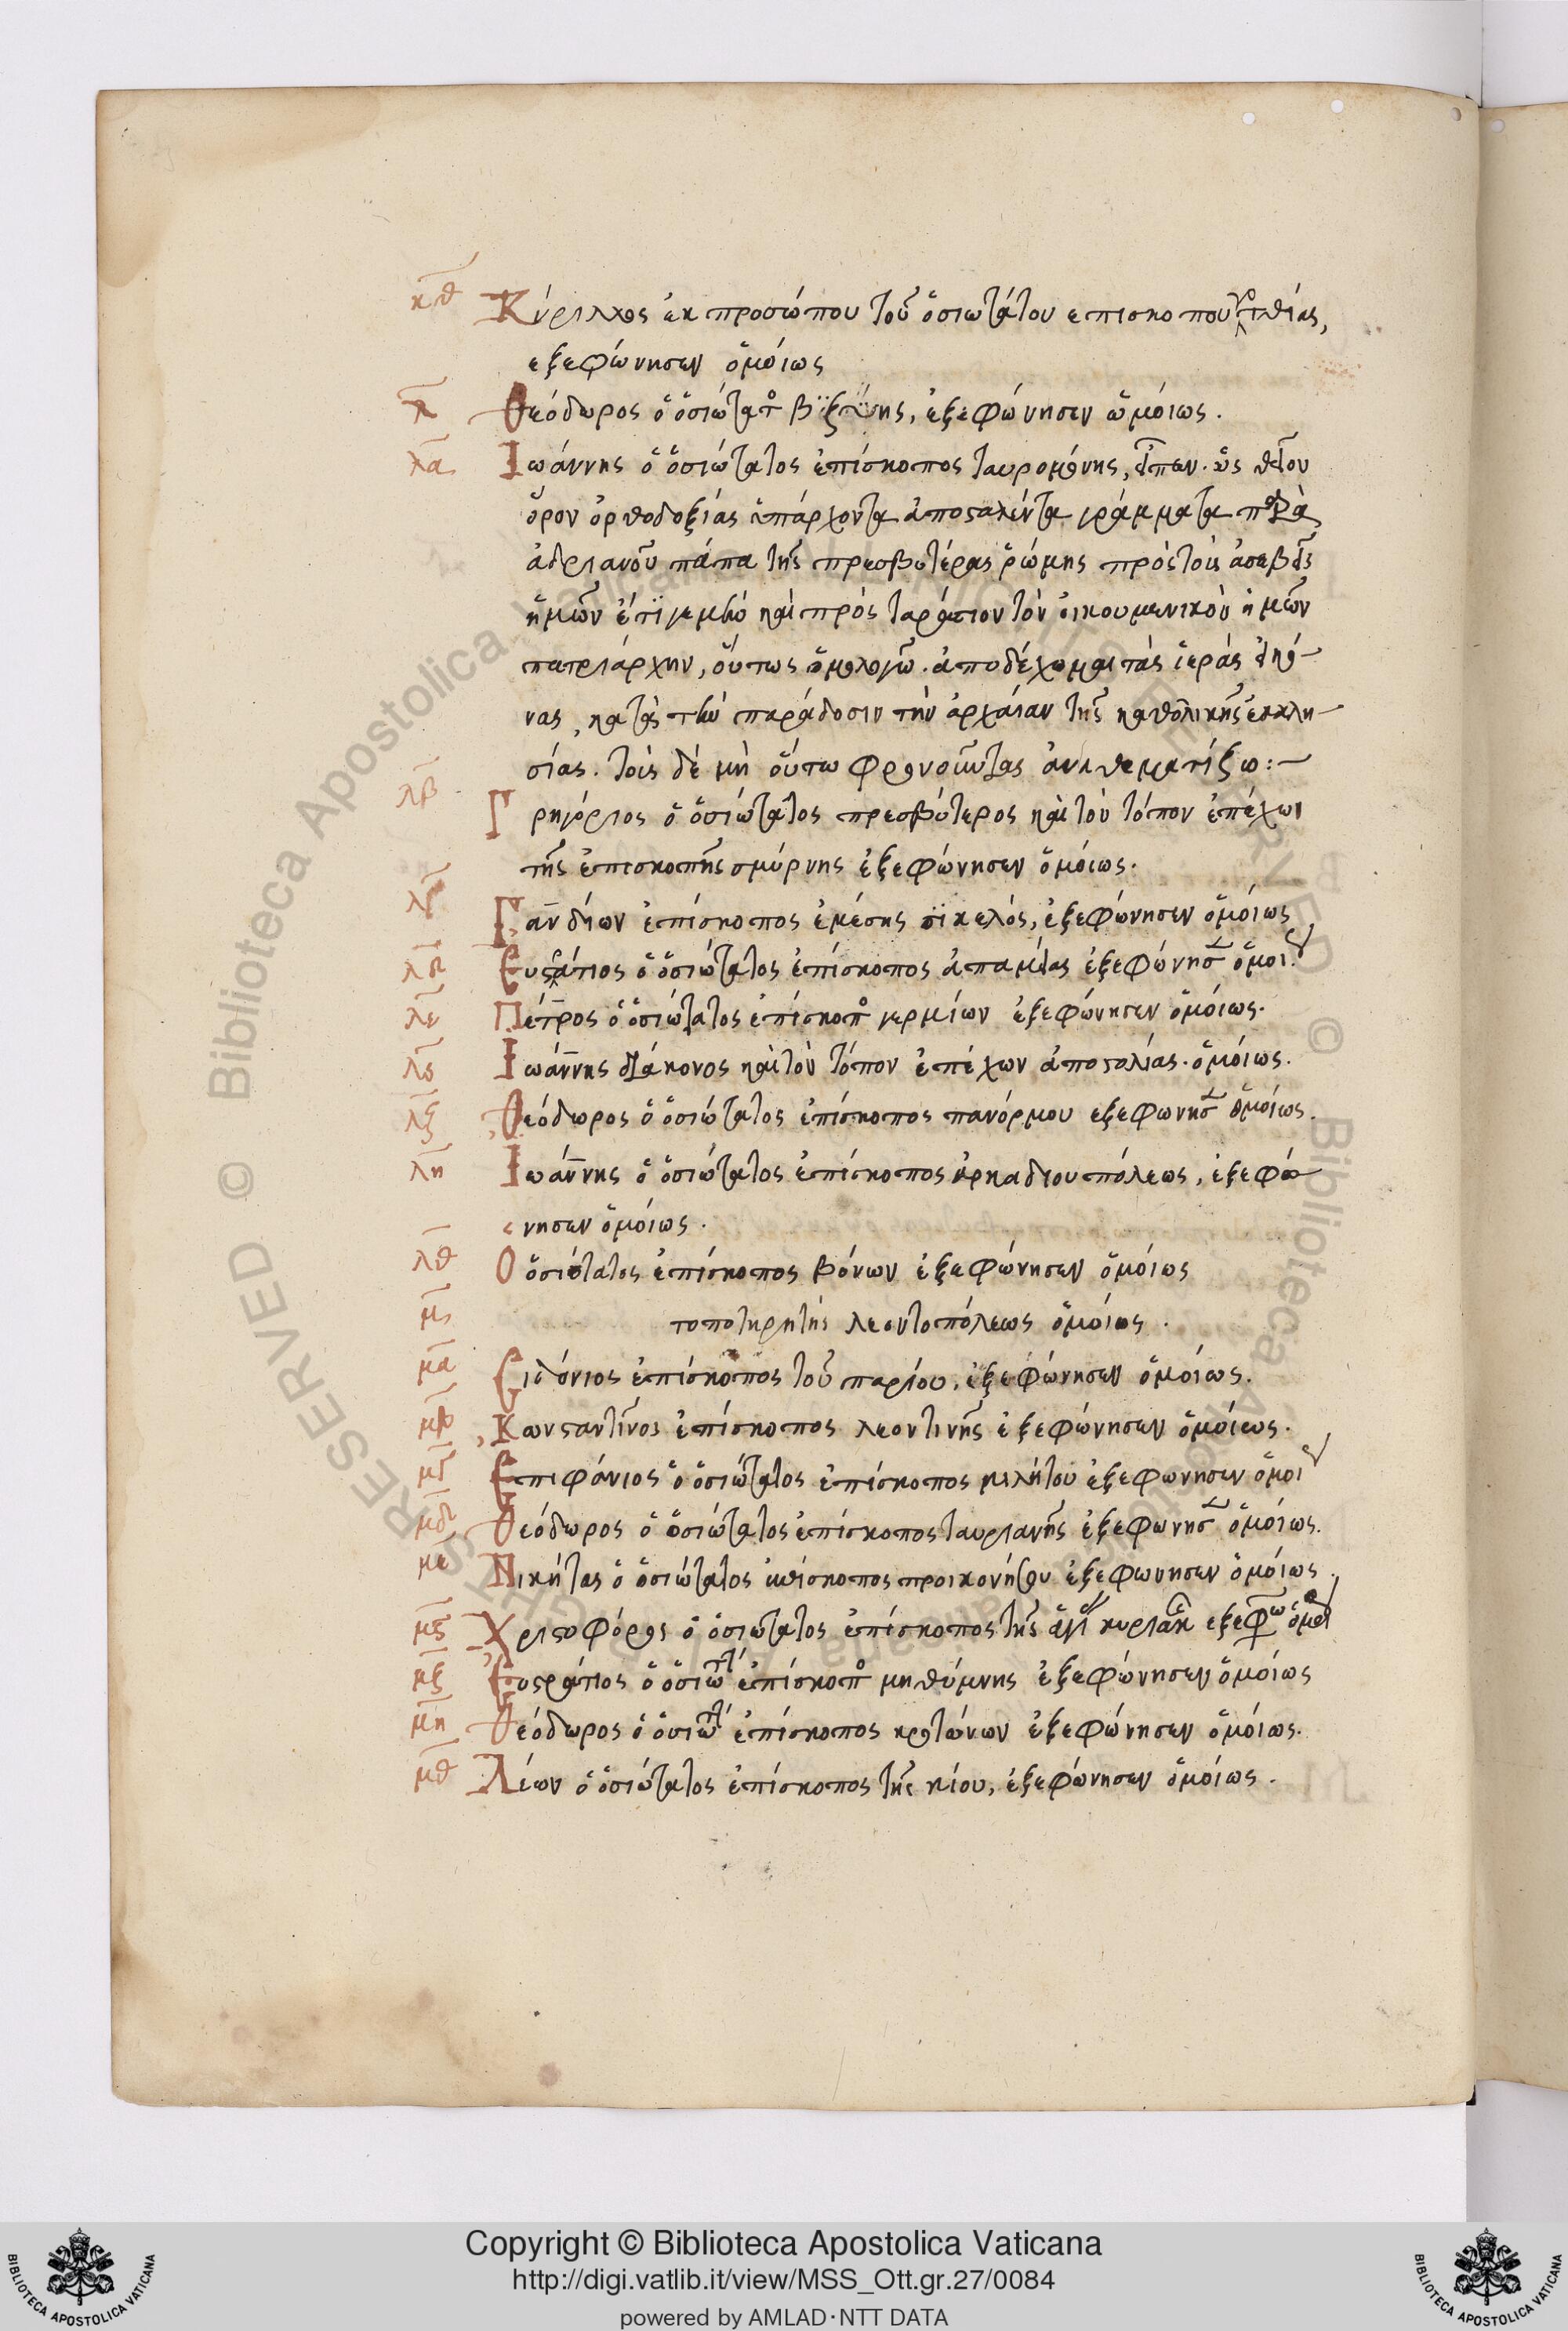 κθ Κύριλλος ἐκ προσώπου τοῦ ὁσιωτάτου επισκοπου γοτθίας,
εξεφώνησεν ὁμοίως
λ Θεόδωρος ὁ ὁσιώτατ βϊζϋης, ἐξεφώνησεν ὡμόιως.
λα Ἰωάννης ὁ ὁσιώτατος ἐπίσκοπος ταυρομένης, εἶπεν. ὡς θεῖου
ὅρον ὀρθοδοξίας ὑπάρχοντα ἀποσταλέντα γράμματα παρὰ
ἀδριανοῦ πάπα τῆς πρεσβυτέρας ῥώμης πρὸς τοὺς ἀσεβεῖς
ἡμῶν καὶ πρὸς ταράσιον τὸν ὀικουμενικὸν ἡμῶν
πατριάρχην, ὅυτως ὁμολογῶ. ἀποδέχομαι τὰς ἱερὰς εἰκό-
νας, κατὰ τὴν παράδοσιν τὴν ἀρχάιαν τῆς καθολικῆς ἐκκλη-
σίας. τοὺς δὲ μὴ ὅυτω φρονοῦντας ἀναθεματίζω:-
λβ Γρηγόριος ὁ ὁσιώτατος πρεσβύτερος καὶ τὸν τόπον ἐπέχων
τῆς ἐπισκοπῆς σμύρνης ἐξεφώνησεν ὁμόιως.
λγ Γανδίων ἐπίσκοπος ἐμέσης σϊκελός, ἐξεφώνησεν ὁμόιως
λδ Ευστράτιος ὁ ὁσιώτατος ἐπίσκοπος ἀπαμείας ἐξεφώνησ ὁμοι
λε Πέτρος ὁ ὁσιώτατος ἐπίσκοπ γερμίων ἐξεφώνησεν ὁμόιως.
λς Ἰωάννης διάκονος καὶ τὸν τόπον ἐπέχων ἀποστολίας. ὁμόιως.
λζ Θεόδωρος ὁ ὁσιώτατος ἐπίσκοπος πανόρμου εξεφωνησ ὁμοίως.
λη Ἰωάννης ὁ ὁσιώτατος ἐπίσκοπος ἀρκαδιουπόλεως, ἐξεφώ
νησεν ὁμόιως.
λθ Ο ὁσιότατος ἐπίσκοπος βόνων ἐξεφώνησεν ὁμόιως
μ τοποτηρητὴς λεοντοπόλεως ὁμόιως.
μα ἐπίσκοπος τοῦ παρίου, ἐξεφώνησεν ὁμόιως.
μβ Κωνσταντῖνος ἐπίσκοπος λεοντινῆς ἐξεφώνησεν ὁμόιως.
μγ Επιφάνιος ὁ ὁσιώτατος ἐπίσκοπος μιλήτου ἐξεφωνησεν ὁμοι
μδ Θεόδωρος ὁ ὁσιώτατος ἐπίσκοπος ταυριανῆς ἐξεφωνησ ὁμόιως.
με Νικήτας ὁ ὁσιώτατος ἐπίσκοπος προικονήσου ἐξεφωνησεν ὁμόιως.
μς Χριστοφόρος ὁ ὁσιωτατος ἐπίσκοπος τῆς ἁγί κυριακ εξεφω ὁμοι
μζ Ευστράτιος ὁ ὁσιωτ ἐπίσκοπ μηθύμνης ἐξεφώνησεν ὁμόιως
μη Θεόδωρος ὁ ὁσιωτ ἐπίσκοπος κροτώνων ἐξεφώνησεν ὁμόιως.
μθ Λέων ὁ ὁσιώτατος ἐπίσκοπος τῆς κίου, ἐξεφώνησεν ὁμόιως.
Copyright © Biblioteca Apostolica Vaticana
http://digi.vatlib.it/view/MSS_Ott.gr.27/0084
powered by AMLAD·NTT DATA